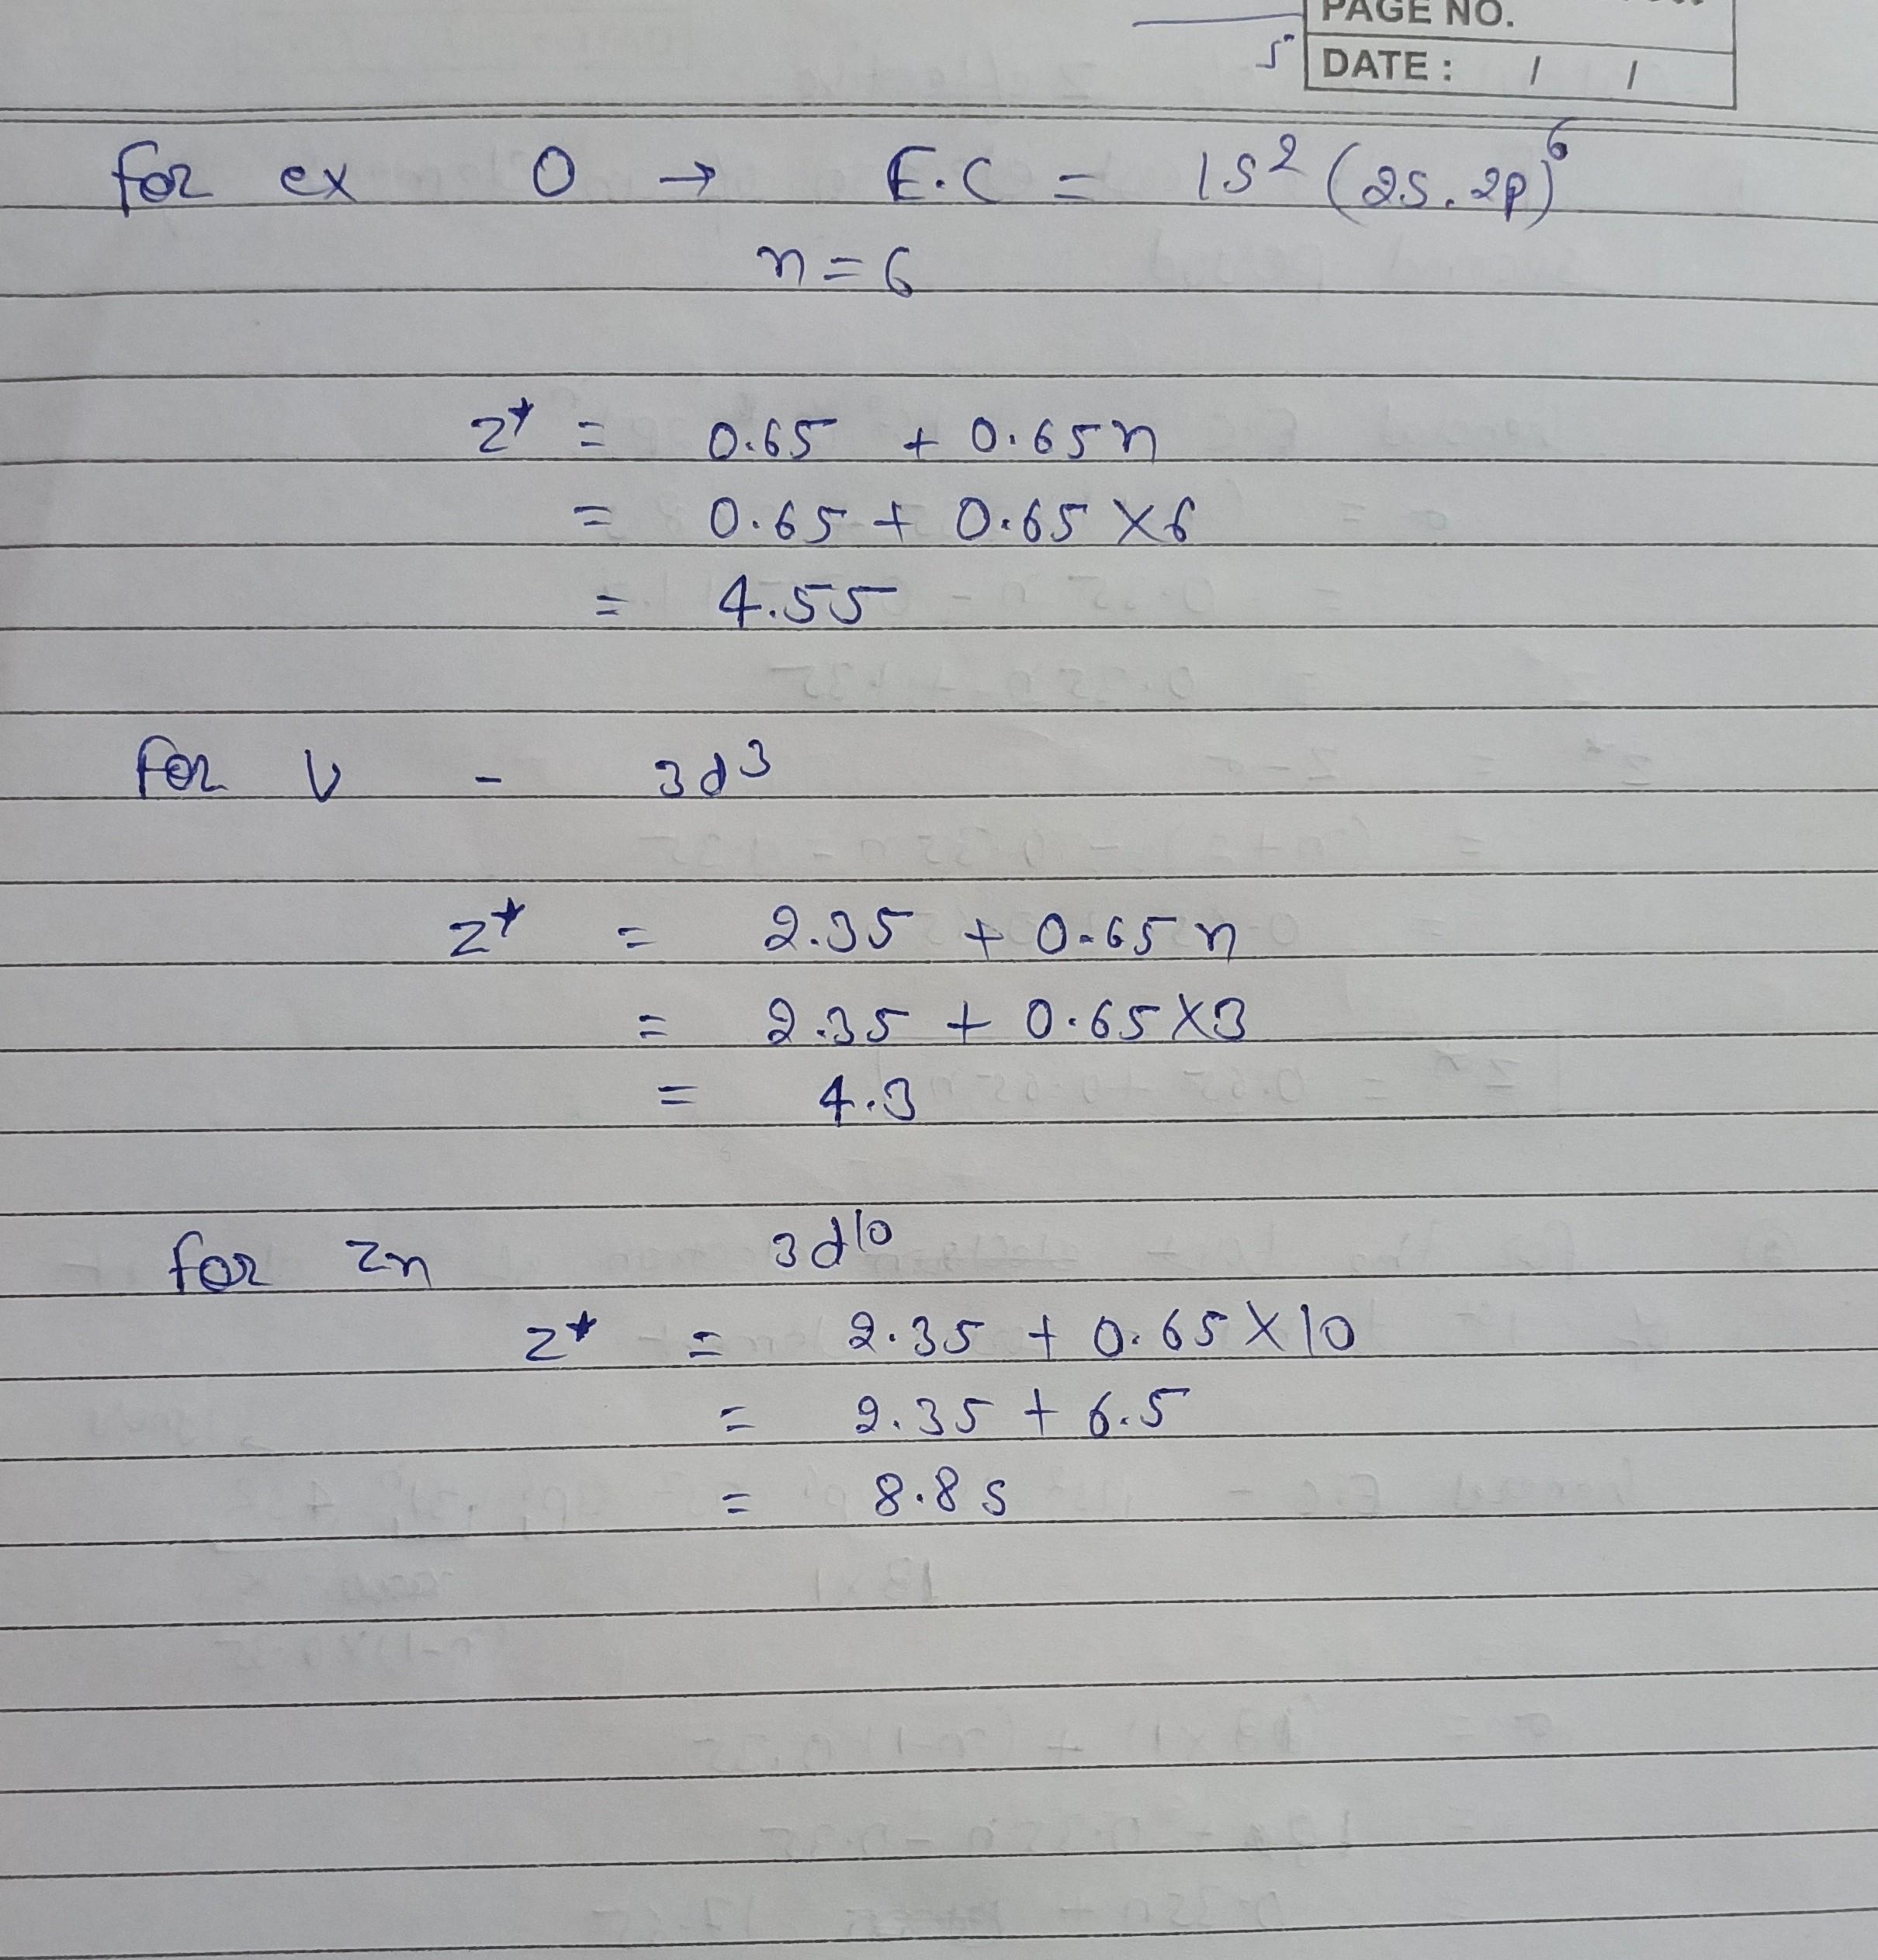 PAGE NO.
5
DATE : / /
for ex O → E.C = 1s² (2s.2p)⁶
n = 6
z* = 0.65 + 0.65n
= 0.65 + 0.65 × 6
= 4.55
for V - 3d³
z* = 2.35 + 0.65n
= 2.35 + 0.65 × 3
= 4.3
for Zn 3d¹⁰
z* = 2.35 + 0.65 × 10
= 2.35 + 6.5
= 8.85